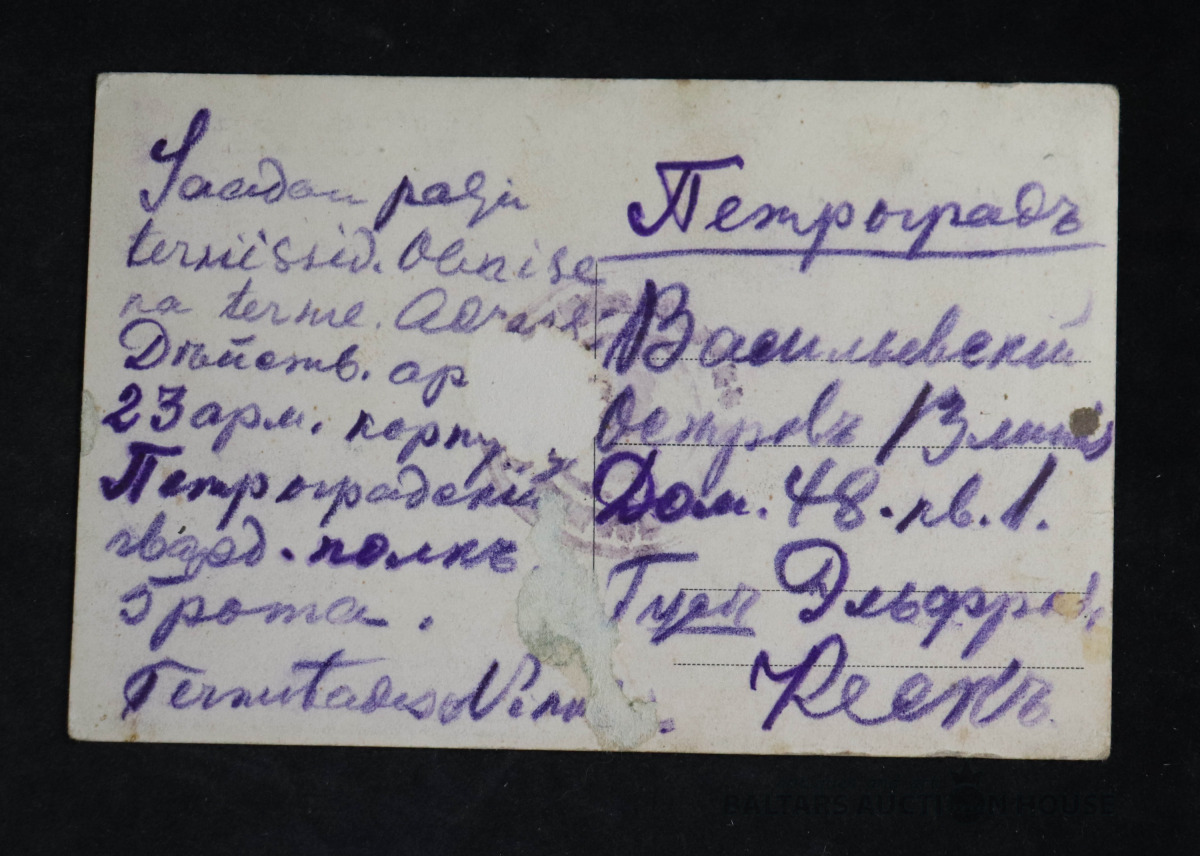 Saadan palju
terviisisid. Olen ise
ka terve.
Дѣйств. ар
23 арм. корпу
Петроградскій
гвард. полкъ
5 рота.
Tervitades
Петроградъ
Васильевский
островъ 13 линія
Дом. 48. кв. 1.
Эльфрид
BALTARS AUCTION HOUSE